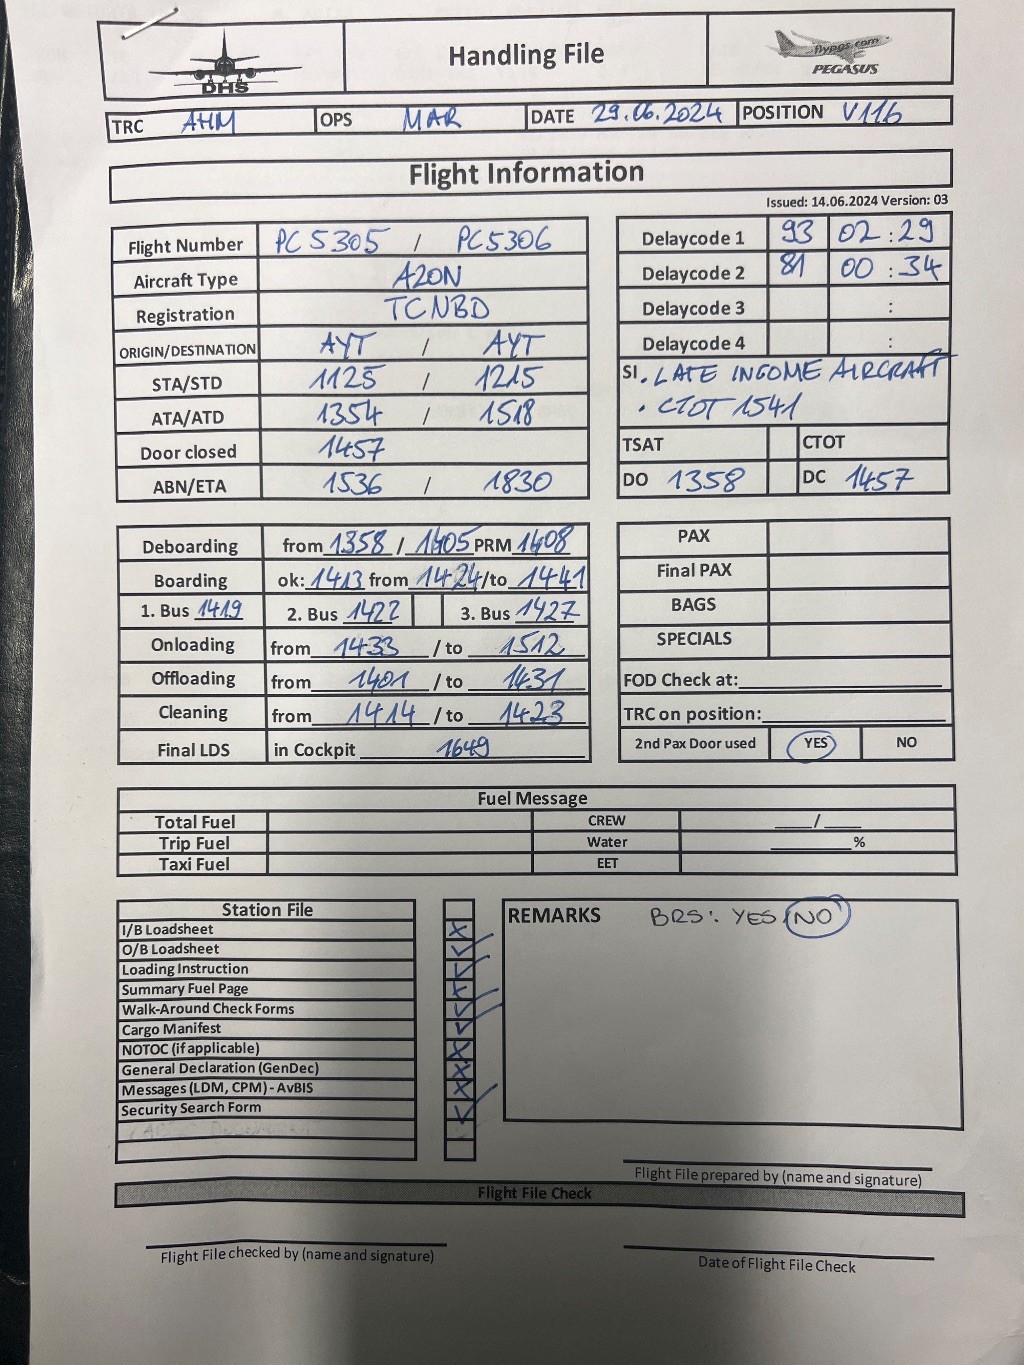 DHS
Handling File
flypgs.com
PEGASUS
TRC AHM OPS MAR DATE 29.06.2024 POSITION V116
Flight Information
Issued: 14.06.2024 Version: 03
Flight Number PC 5305 / PC5306
Aircraft Type A20N
Registration TCNBD
ORIGIN/DESTINATION AYT / AYT
STA/STD 1125 / 1215
ATA/ATD 1354 / 1518
Door closed 1457
ABN/ETA 1536 / 1830
Delaycode 1 93 02:29
Delaycode 2 81 00:34
Delaycode 3 :
Delaycode 4 :
SI . LATE INCOME AIRCRAFT
. CTOT 1541
TSAT CTOT
DO 1358 DC 1457
Deboarding from 1358 / 1405 PRM 1408
Boarding ok: 1413 from 1424/to 1441
1. Bus 1419 2. Bus 1422 3. Bus 1427
Onloading from 1433 / to 1512
Offloading from 1401 / to 1431
Cleaning from 1414 / to 1423
Final LDS in Cockpit 1649
PAX
Final PAX
BAGS
SPECIALS
FOD Check at:
TRC on position:
2nd Pax Door used YES NO
Fuel Message
Total Fuel CREW /
Trip Fuel Water %
Taxi Fuel EET
Station File
I/B Loadsheet
O/B Loadsheet
Loading Instruction
Summary Fuel Page
Walk-Around Check Forms
Cargo Manifest
NOTOC (if applicable)
General Declaration (GenDec)
Messages (LDM, CPM) - AvBIS
Security Search Form
REMARKS BRS: YES/NO
Flight File prepared by (name and signature)
Flight File Check
Flight File checked by (name and signature)
Date of Flight File Check